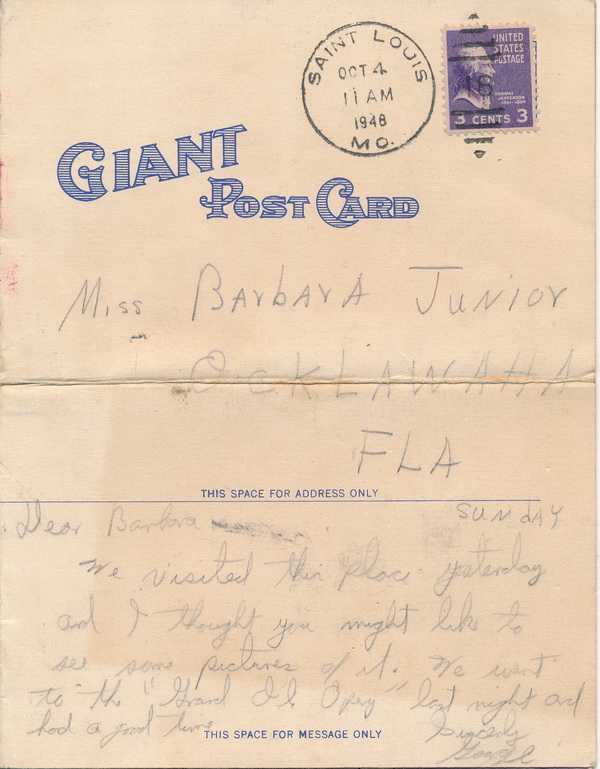 SAINT LOUIS
OCT 4
11 AM
1948
MO.
UNITED
STATES
POSTAGE
16
THOMAS
JEFFERSON
1801-1809
3 CENTS 3
GIANT
POST CARD
Miss BArbArA JuNior
OCKLAWAHA
FLA
THIS SPACE FOR ADDRESS ONLY
SUNdAY
Dear Barbara
We visited this place yesterday
and I thought you might like to
see some pictures of it. We went
to the "Grand Ole Opry" last night and
had a good time
THIS SPACE FOR MESSAGE ONLY
Sincerely
George